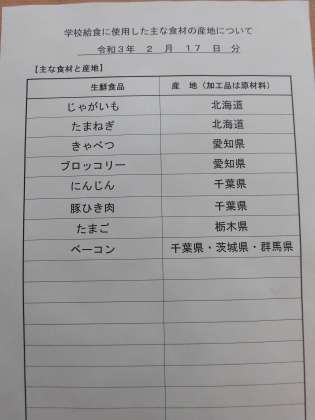 学校給食に使用した主な食材の産地について
令和3年 2 月 17 日 分
【主な食材と産地】
生鮮食品 産 地（加工品は原材料）
じゃがいも 北海道
たまねぎ 北海道
きゃべつ 愛知県
ブロッコリー 愛知県
にんじん 千葉県
豚ひき肉 千葉県
たまご 栃木県
ベーコン 千葉県・茨城県・群馬県